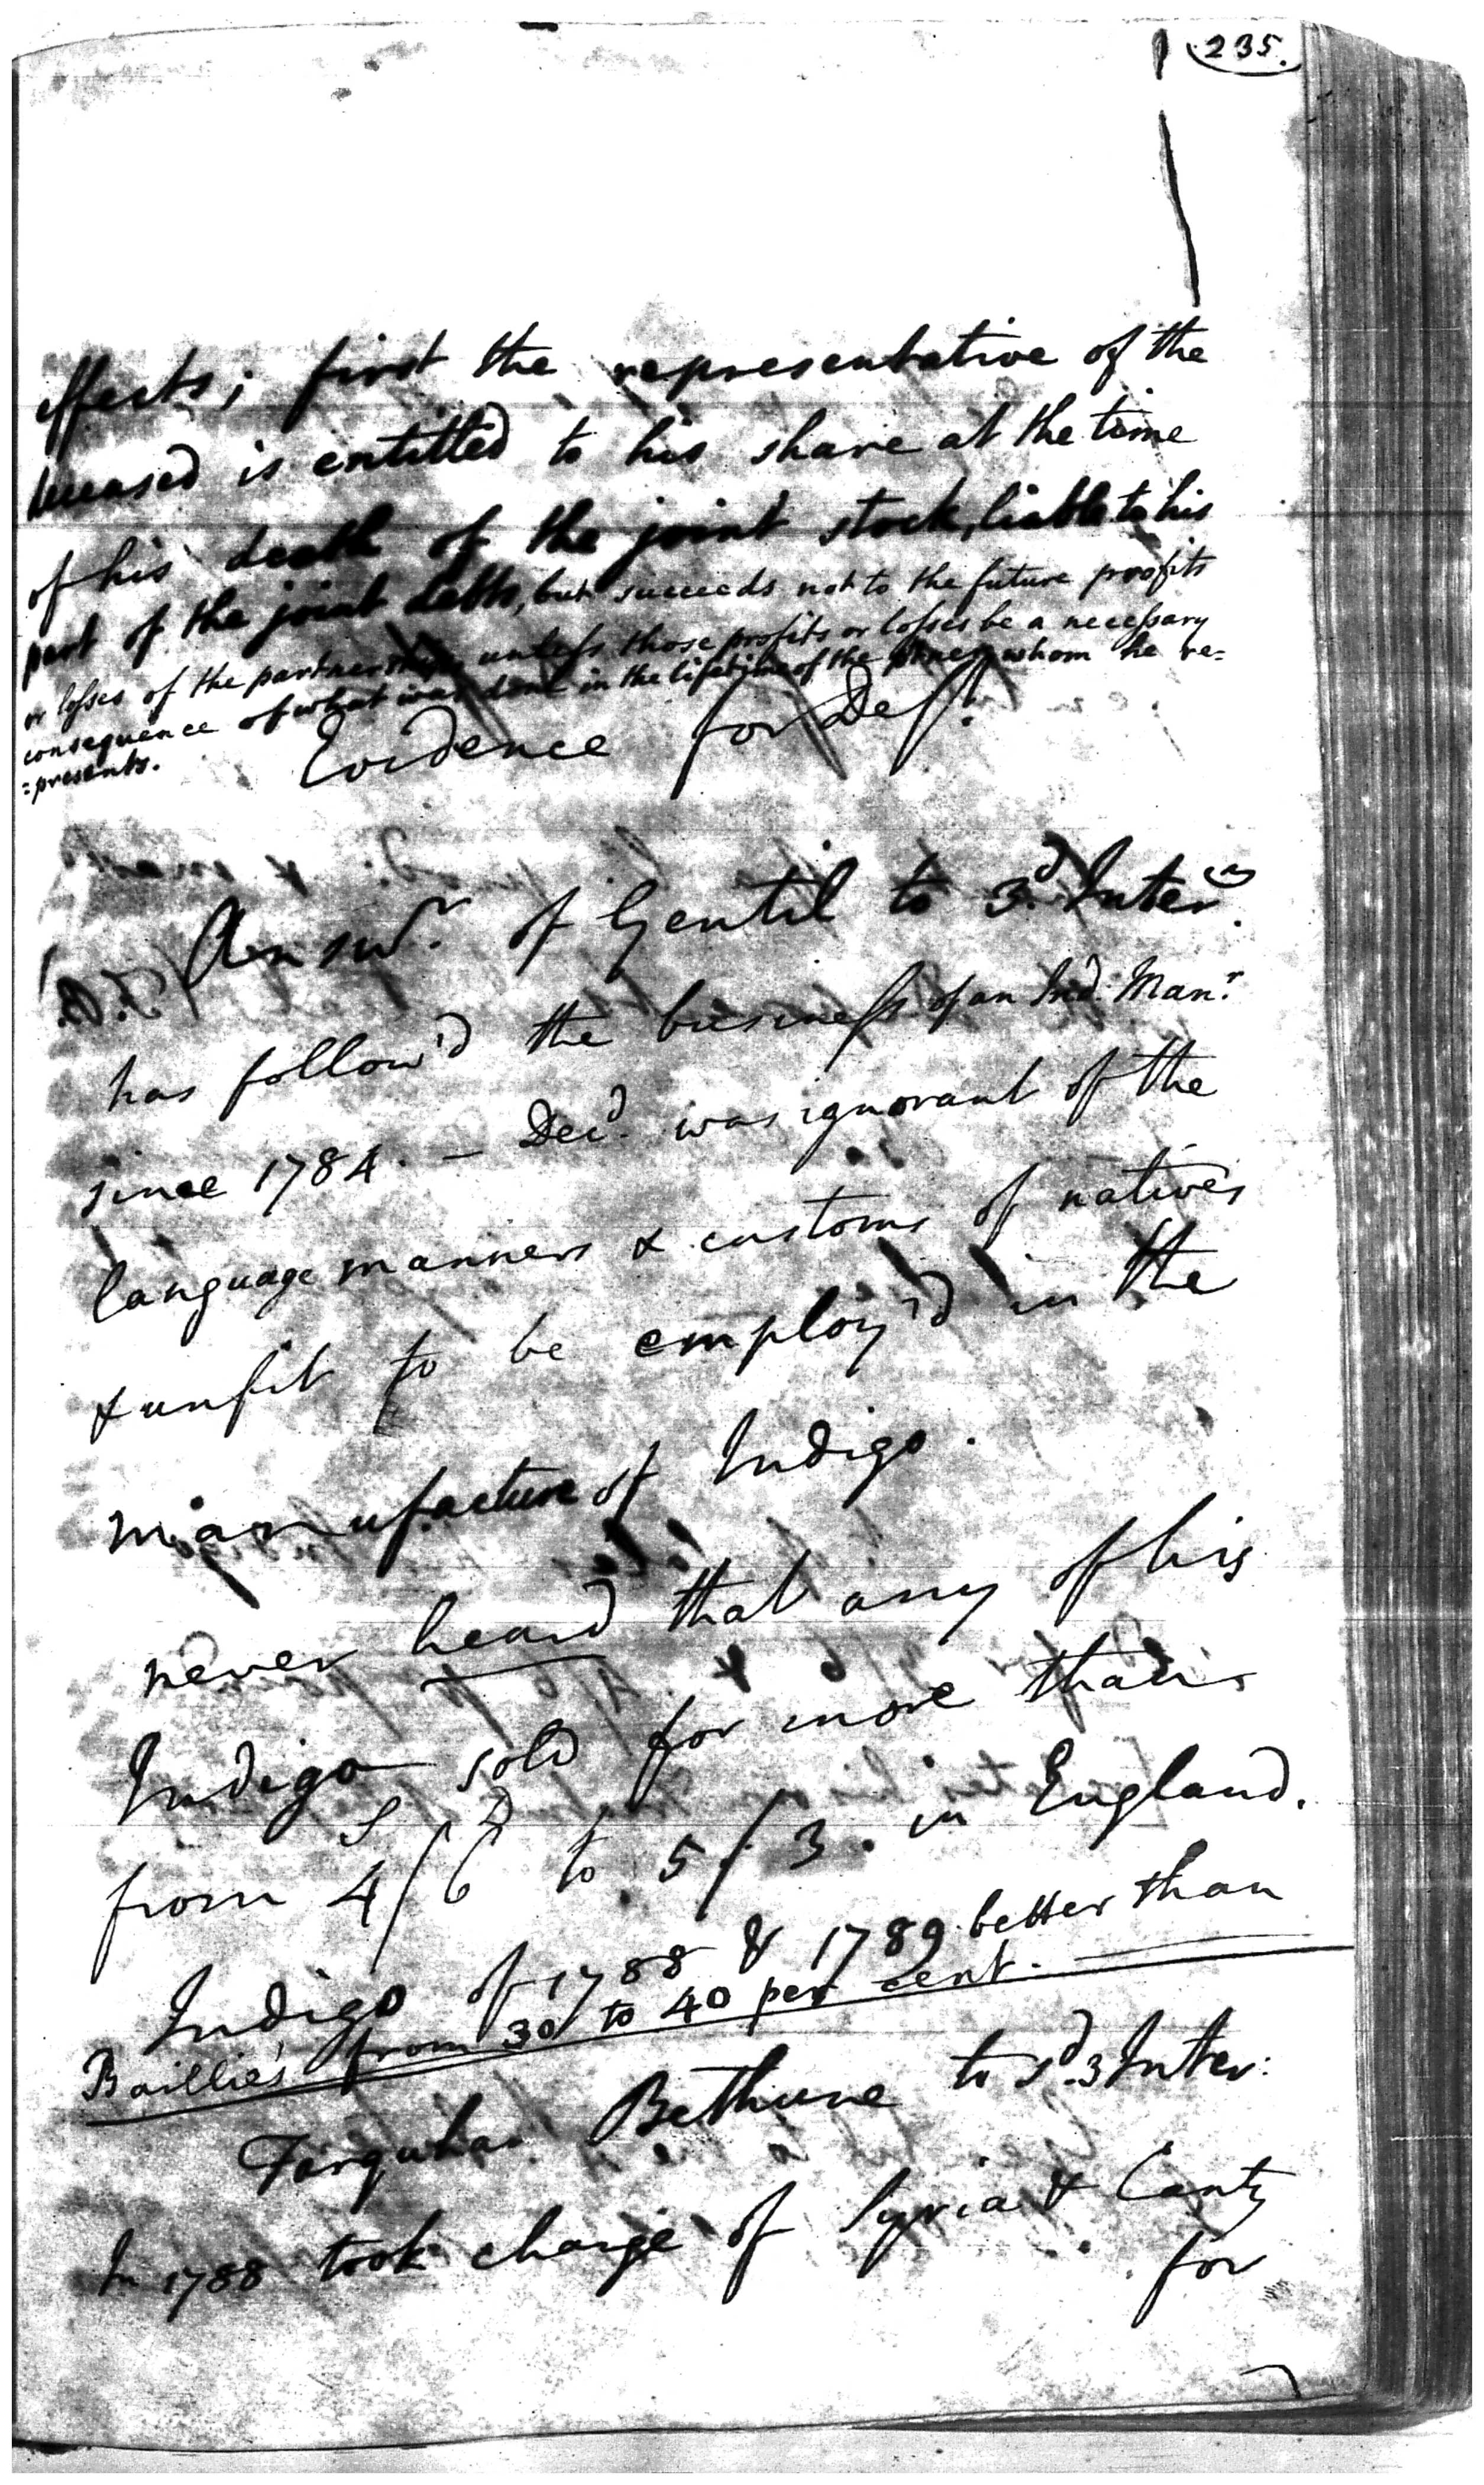 235.
effects; first the representative of the
deceased is entitled to his share at the time
of his death of the joint stock, liable to his
part of the joint debts, but succeeds not to the future profits
or losses of the partnership unless those profits or losses be a necessary
consequence of what was done in the lifetime of the whom he re=
=presents.
Evidence for Def.t
Answ.r of Gentil to 3.d Inter.
has follow'd the business of an Ind. Man.r
since 1784. — Dec.d was ignorant of the
language manners & customs of natives
& unfit to be employ'd in the
manufacture of Indigo.
never heard that any of his
Indigo sold for more than
from 4/6 to 5/3. in England.
Indigo of 1788 & 1789 better than
Baillie's from 30 to 40 per cent.
Farquhar Bethune to s.d 3 Inter:
In 1788 took charge of Syria & Canty
for